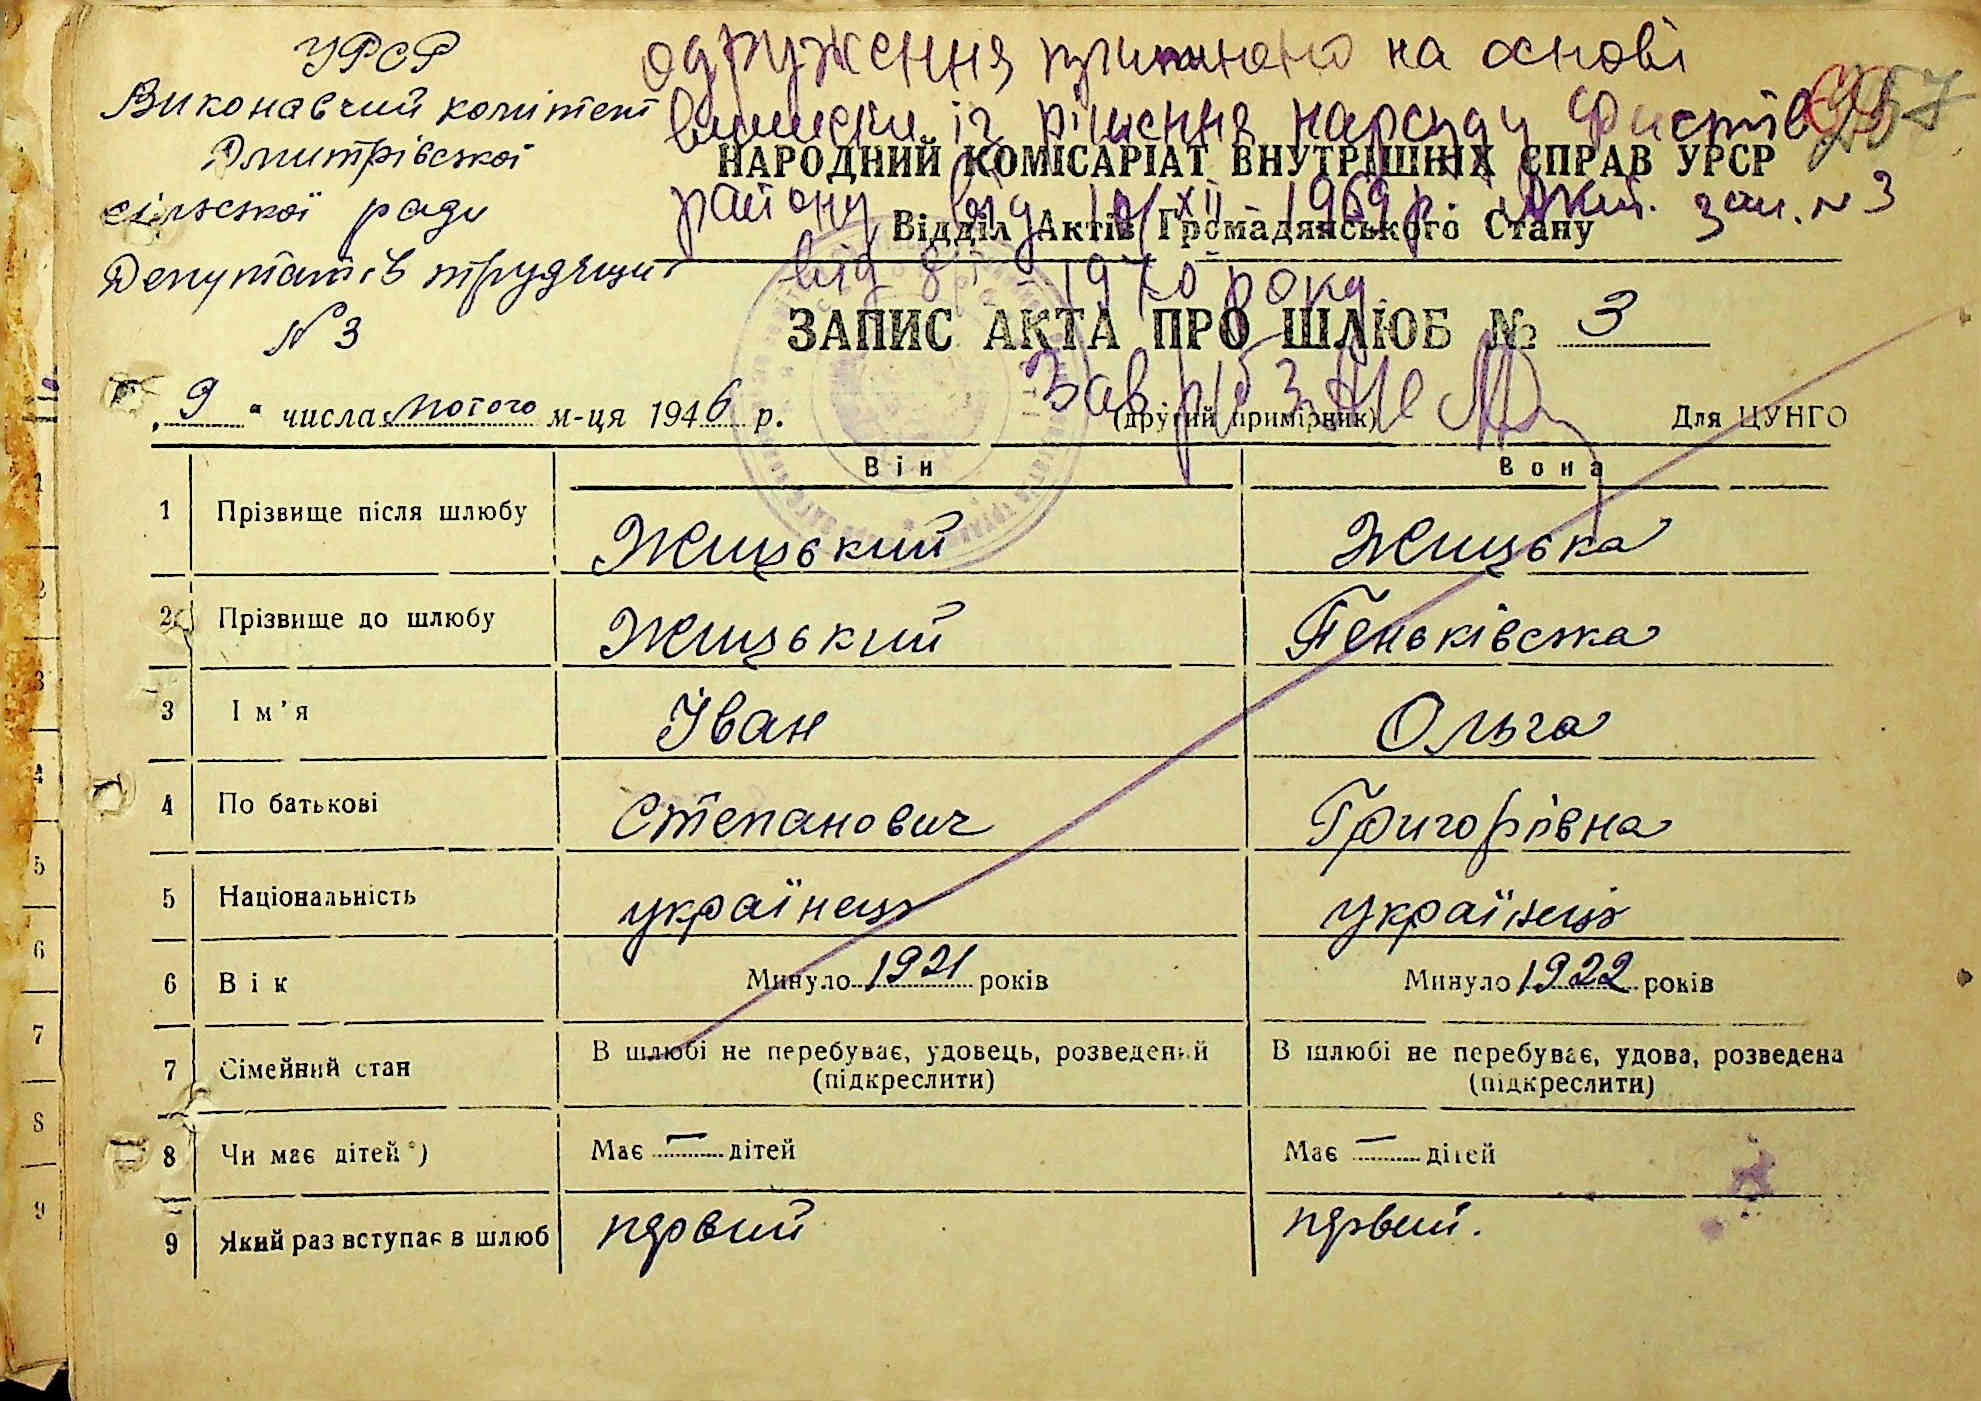 УРСР
Виконавчий комітет
Дмитрівської
сільської ради
Депутатів трудящих
№ 3
одруження на основі
виписки із рішення нарсуду Фастів
району від XII 1969 р. зап. № 3
від 1970 року
Зав.
НАРОДНИЙ КОМІСАРІАТ ВНУТРІШНІХ СПРАВ УРСР
Відділ Актів Громадянського Стану
ЗАПИС АКТА ПРО ШЛЮБ № 3
„ 9 “ числа лютого м-ця 1946 р. (другий примірник) Для ЦУНГО
Він Вона
1 Прізвище після шлюбу Жицький Жицька
2 Прізвище до шлюбу Жицький Пеньківська
3 Ім’я Іван Ольга
4 По батькові Степанович Григорівна
5 Національність українець українець
6 Вік Минуло 1921 років Минуло 1922 років
7 Сімейний стан В шлюбі не перебуває, удовець, розведений (підкреслити) В шлюбі не перебуває, удова, розведена (підкреслити)
8 Чи має дітей*) Має — дітей Має — дітей
9 Який раз вступає в шлюб первий первий.